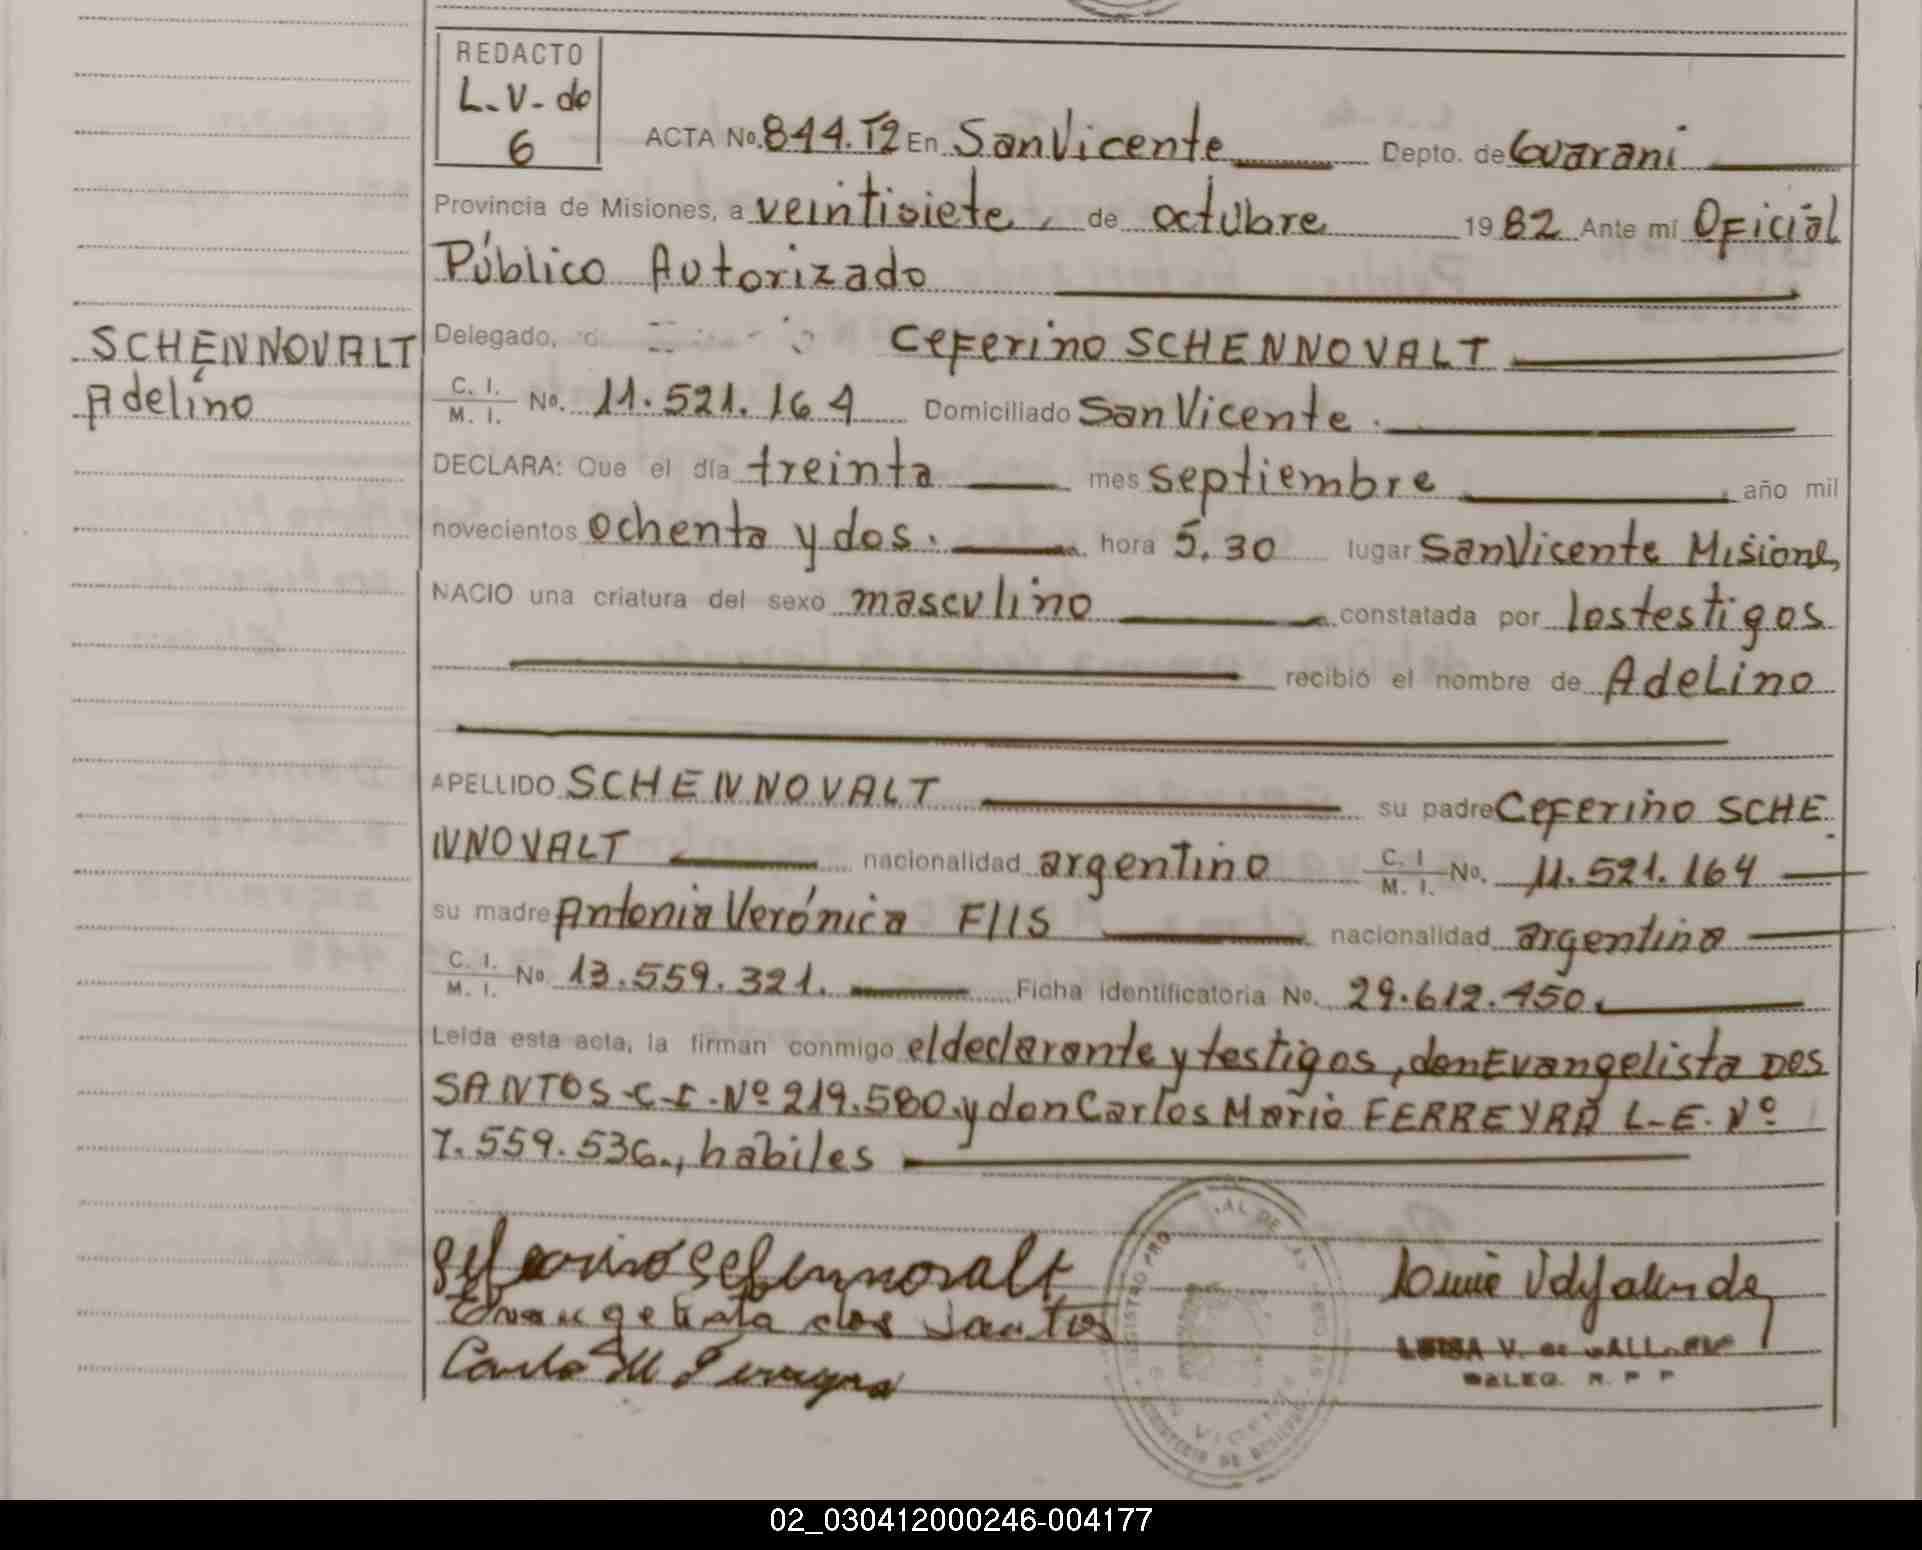 REDACTO
L.V. de
6
ACTA No. 844. T2 En San Vicente Depto. de Guarani
Provincia de Misiones, a veintisiete, de octubre 1982 Ante mí Oficial
Público Autorizado
SCHENNOVALT
Adelino
Delegado, Ceferino SCHENNOVALT
C. I.
M. I. No. 11.521.164 Domiciliado San Vicente.
DECLARA: Que el día treinta mes septiembre año mil
novecientos ochenta y dos. hora 5.30 lugar San Vicente Misiones
NACIO una criatura del sexo masculino constatada por los testigos
recibió el nombre de Adelino
APELLIDO SCHENNOVALT su padre Ceferino SCHE
NNOVALT nacionalidad argentino C. I. M. I. No. 11.521.164
su madre Antonia Verónica FIIS nacionalidad argentina
C. I. M. I. No. 13.559.321. Ficha identificatoria No. 29.612.450.
Leida esta acta, la firman conmigo el declarante y testigos, don Evangelista DOS
SANTOS-C-I-Nº 219.580. y don Carlos Mario FERREYRA L-E. Nº
7.559.536., habiles
Ceferino Schennovalt
Evangelista dos Santos
Carlos M Ferreyra
LUISA V. de
DELEG. R. P. P
REGISTRO PRO AL DE LAS
MINISTERIO DE GOBIERNO
VICENTE
02_030412000246-004177